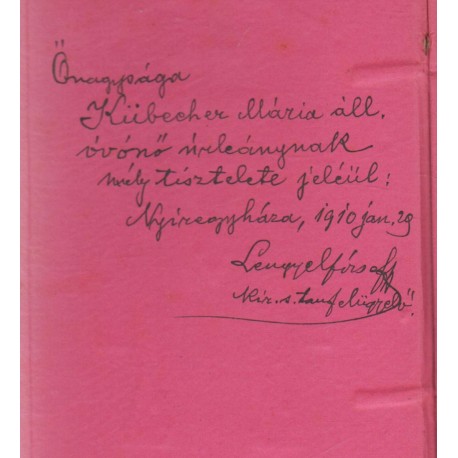 Őnagysága
Kübecher Mária áll.
óvónő úrleánynak
mély tisztelete jeléül:
Nyiregyháza, 1910 jan. 29
Lengyelfi
kir. s. tanfelügyelő!